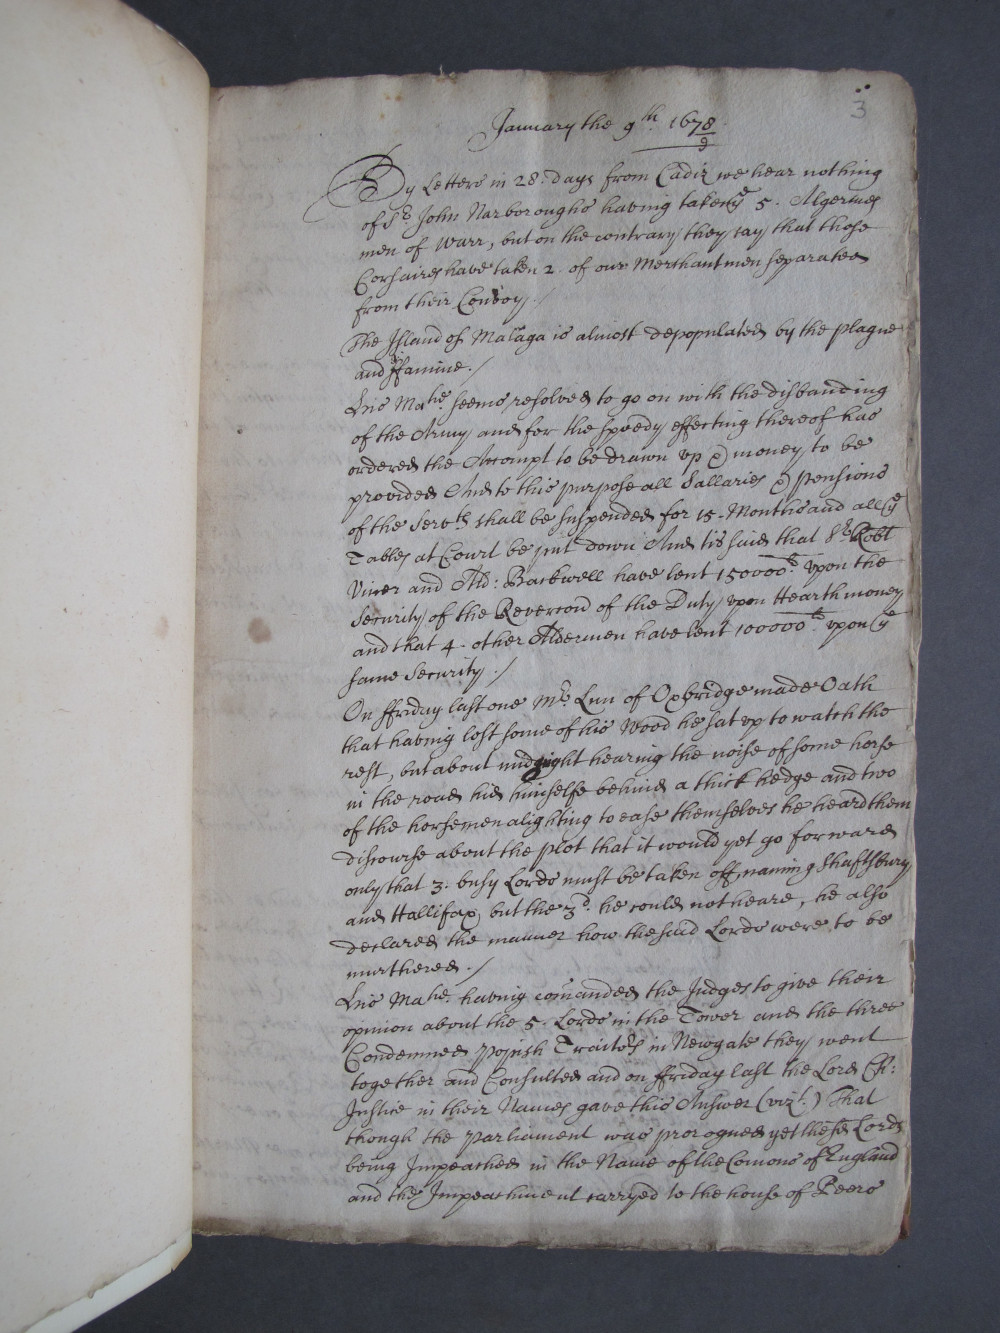 3
January the 9th. 1678/9
By Letters in 28. days from Cadiz we hear nothing
of Sr. John Narboroughs having taken ye 5. Algerines
men of Warr, but on the contrary they say that those
Corsaires have taken 2. of our Merchantmen separated
from their Convoy./
The Island of Malaga is almost depopulated by the plague
and ffamine./
His Matie. seems resolved to go on with the disbanding
of the Army and for the speedy effecting thereof has
ordered the Accompt to be drawn vp & money to be
provided And to this purpose all Sallaries & pensions
of the Servts. shall be suspended for 15. Months and all ye
Tables at Court be put down And tis said that Sr. Robt
Viner and Ald: Backwell have lent 150000l. vpon the
Security of the Revercon of the Duty vpon Hearth money
and that 4. other Aldermen have lent 100000l. vpon ye
same Security./
On ffriday last one Mr. Lun of Oxbridge made Oath
that having lost some of his Wood he sat vp to watch the
rest, but about midnight hearing the noise of some horse
in the road hid himselfe behind a thick hedge and two
of the horsemen alighting to ease themselves he heard them
discourse about the plot that it would yet go forward
only that 3. busy Lords must be taken off, naming Shaftsbury
and Hallifax but the 3d. he could not heare, he also
declared the manner how the said Lords were to be
murthered./
His Matie. having comanded the Judges to give their
opinion about the 5. Lords in the Tower and the three
Condemned Popish Traitors in Newgate they went
together and Consulted and on ffriday last the Lord Ch:
Justice in their Names gave this Answer (vizt.) That
though the Parliament was prorogued yet these Lords
being Impeached in the Name of the Comons of England
and the Impeachment carryed to the house of Peers